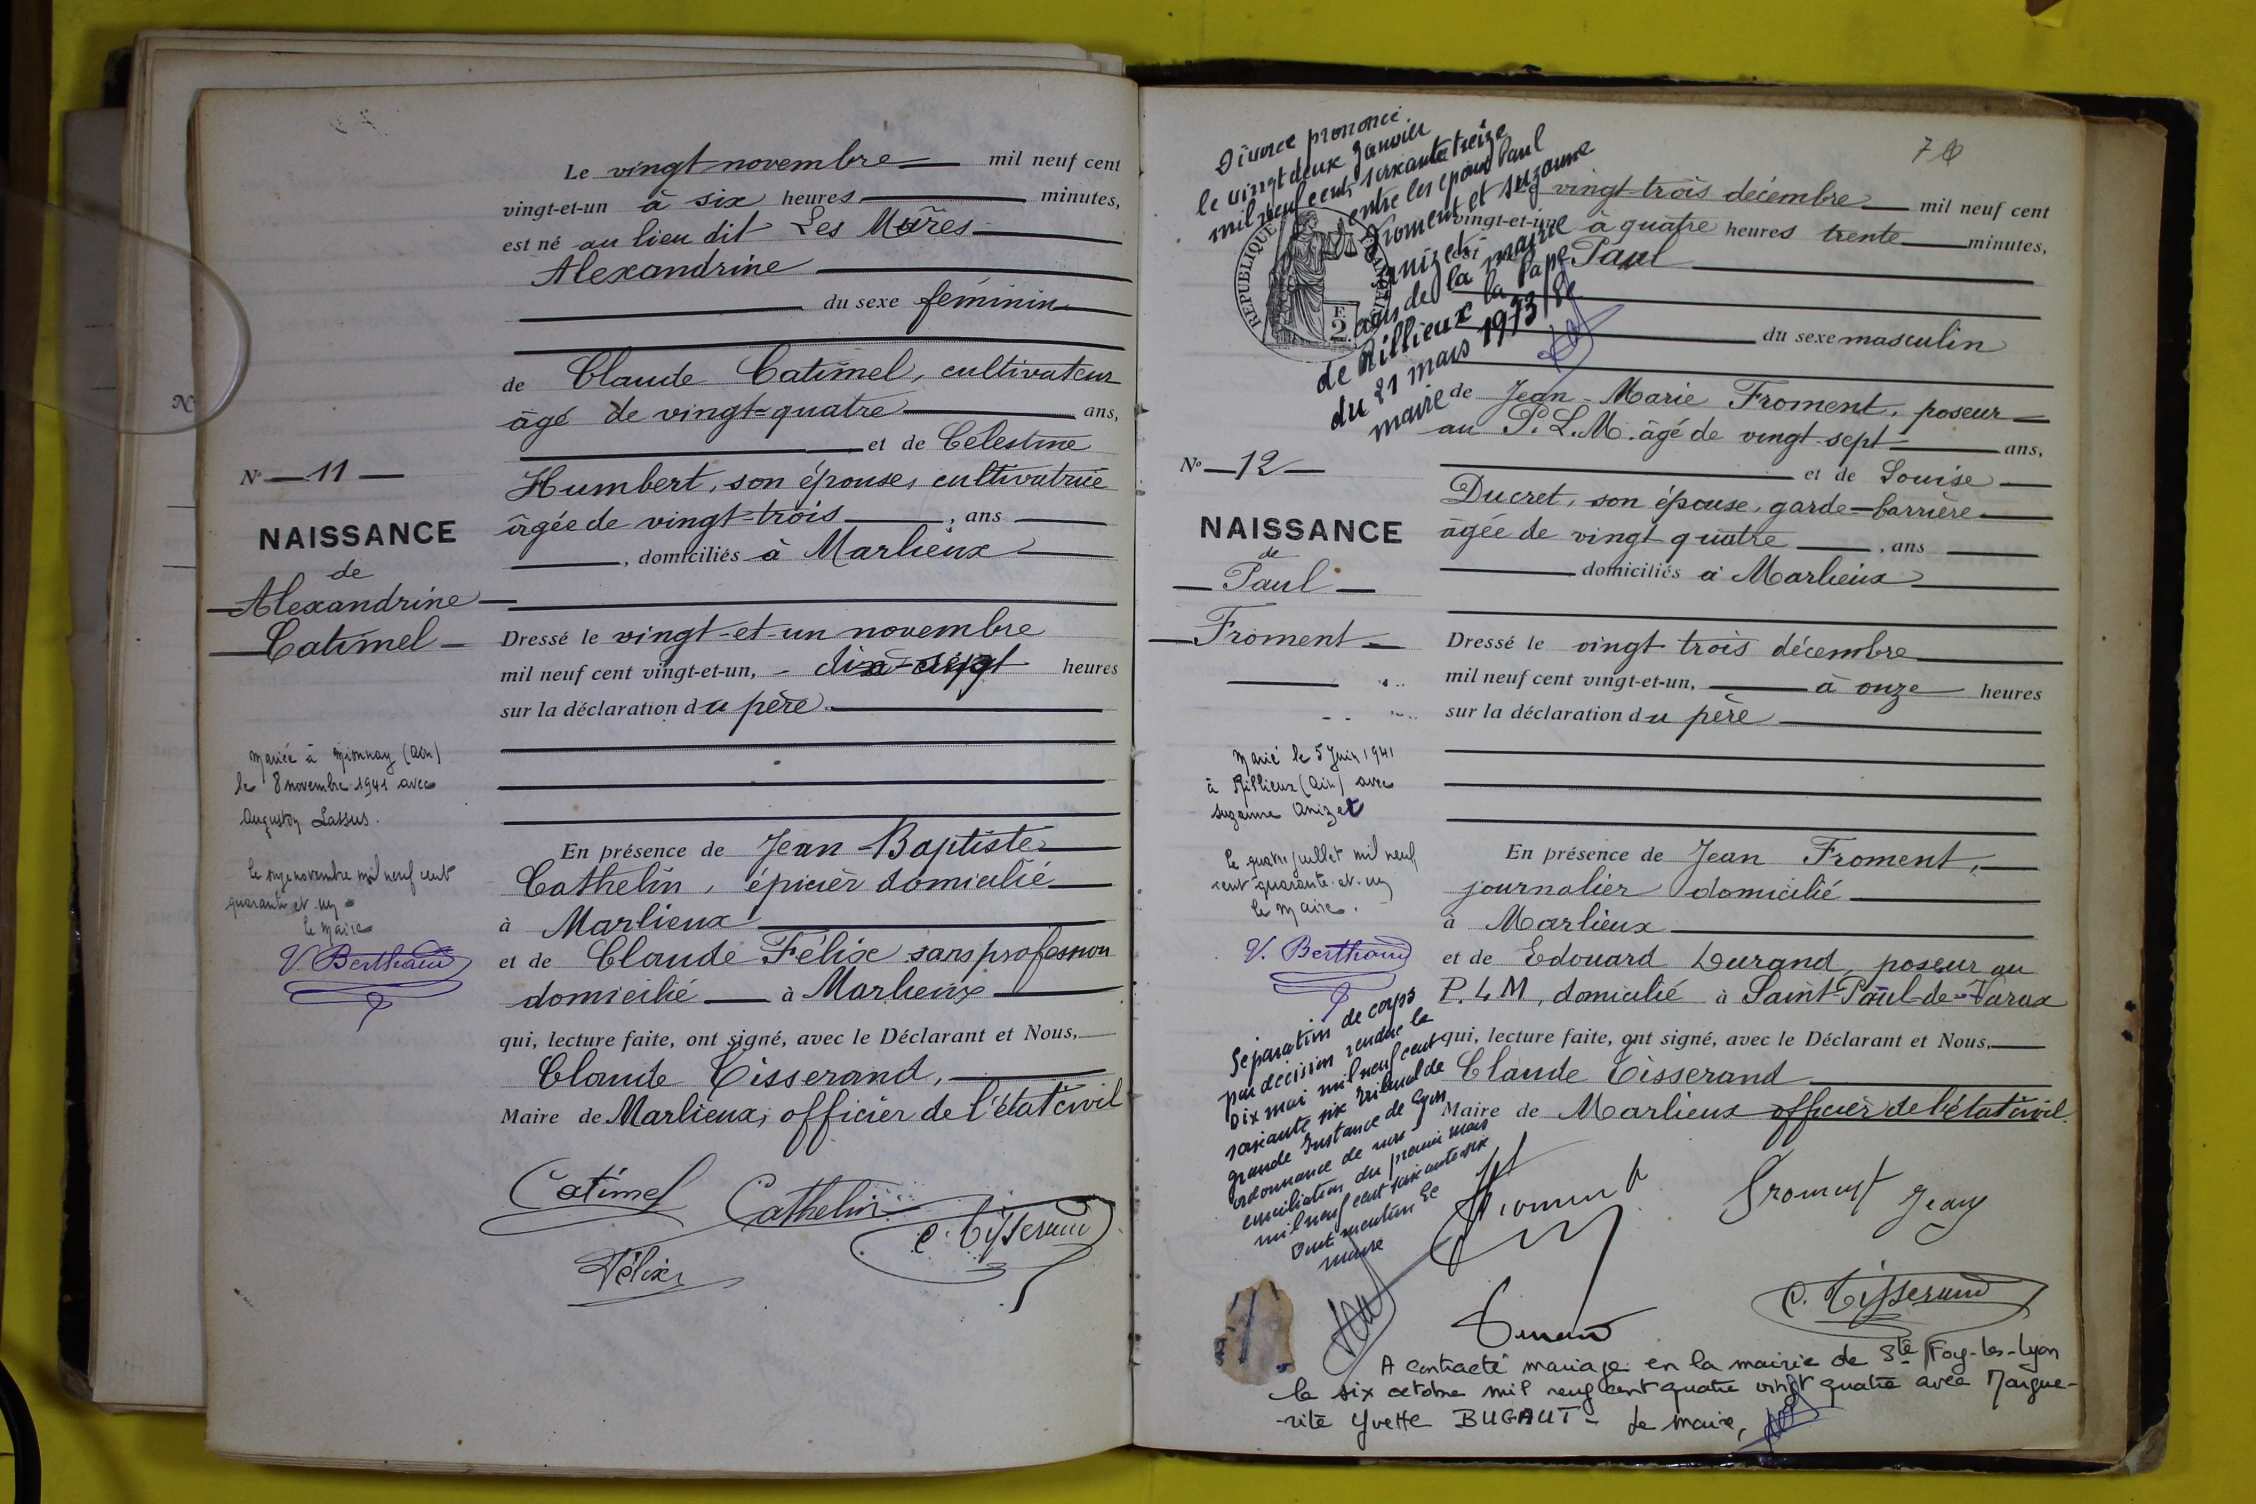 Le vingt novembre mil neuf cent
vingt-et-un à six heures minutes,
est né au lieu dit Les Mûres
Alexandrine
du sexe féminin
de Claude Catimel, cultivateur
âgé de vingt-quatre ans,
et de Célestine
Humbert, son épouse, cultivatrice
âgée de vingt-trois, ans
, domiciliés à Marlieux
Dressé le vingt-et-un novembre
mil neuf cent vingt-et-un, heures
sur la déclaration du père
En présence de Jean-Baptiste
Cathelin, épicier domicilié
à Marlieux
et de Claude Félix sans profession
domicilié à Marlieux
qui, lecture faite, ont signé, avec le Déclarant et Nous,
Claude Tisserand,
Maire de Marlieux, officier de l'état civil
Catimel
Cathelin
C. Tisserand
Félix
No 11
NAISSANCE
de
Alexandrine
Catimel
Mariée à Mionnay (Ain)
le 8 novembre 1941 avec
Lassus.
Le onze novembre mil neuf cent
quarante et un
Le Maire
V. Berthaud
Divorce prononcé
le vingt deux Janvier
mil neuf cent soixante treize
entre les époux Paul
Froment et Suzanne
Anizet
avis de la mairie
de Rillieux la Pape
du 21 mars 1973/
maire
RÉPUBLIQUE
vingt-trois décembre mil neuf cent
vingt-et-un à quatre heures trente minutes,
Paul
du sexe masculin
de Jean-Marie Froment, poseur
au P.L.M. âgé de vingt-sept ans,
et de Louise
Ducret, son épouse, garde-barrière
âgée de vingt quatre, ans
domiciliés à Marlieux
Dressé le vingt trois décembre
mil neuf cent vingt-et-un, à onze heures
sur la déclaration du père
En présence de Jean Froment,
journalier domicilié
à Marlieux
et de Edouard Durand, poseur au
P.L.M, domicilié à Saint-Paul-de-Varax
qui, lecture faite, ont signé, avec le Déclarant et Nous,
Claude Tisserand
Maire de Marlieux officier de l'état civil.
Froment Jean
C. Tisserand
No 12
NAISSANCE
de
Paul
Froment
Marié le 5 Juin 1941
à Rillieux (Ain) avec
Suzanne Anizet
Le quatre juillet mil neuf
cent quarante et un
Le Maire.
V. Berthaud
Séparation de corps
par décision rendue le
Dix mai mil neuf cent
soixante six Tribunal de
grande Instance de Lyon
ordonnance de non
conciliation du premier mars
mil neuf cent soixante six
Dont mention Le
maire
A contracté mariage en la mairie de Ste Foy-les-Lyon
le six octobre mil neuf cent quatre vingt quatre avec Margue-
-rite Yvette BUGAUT - Le Maire,